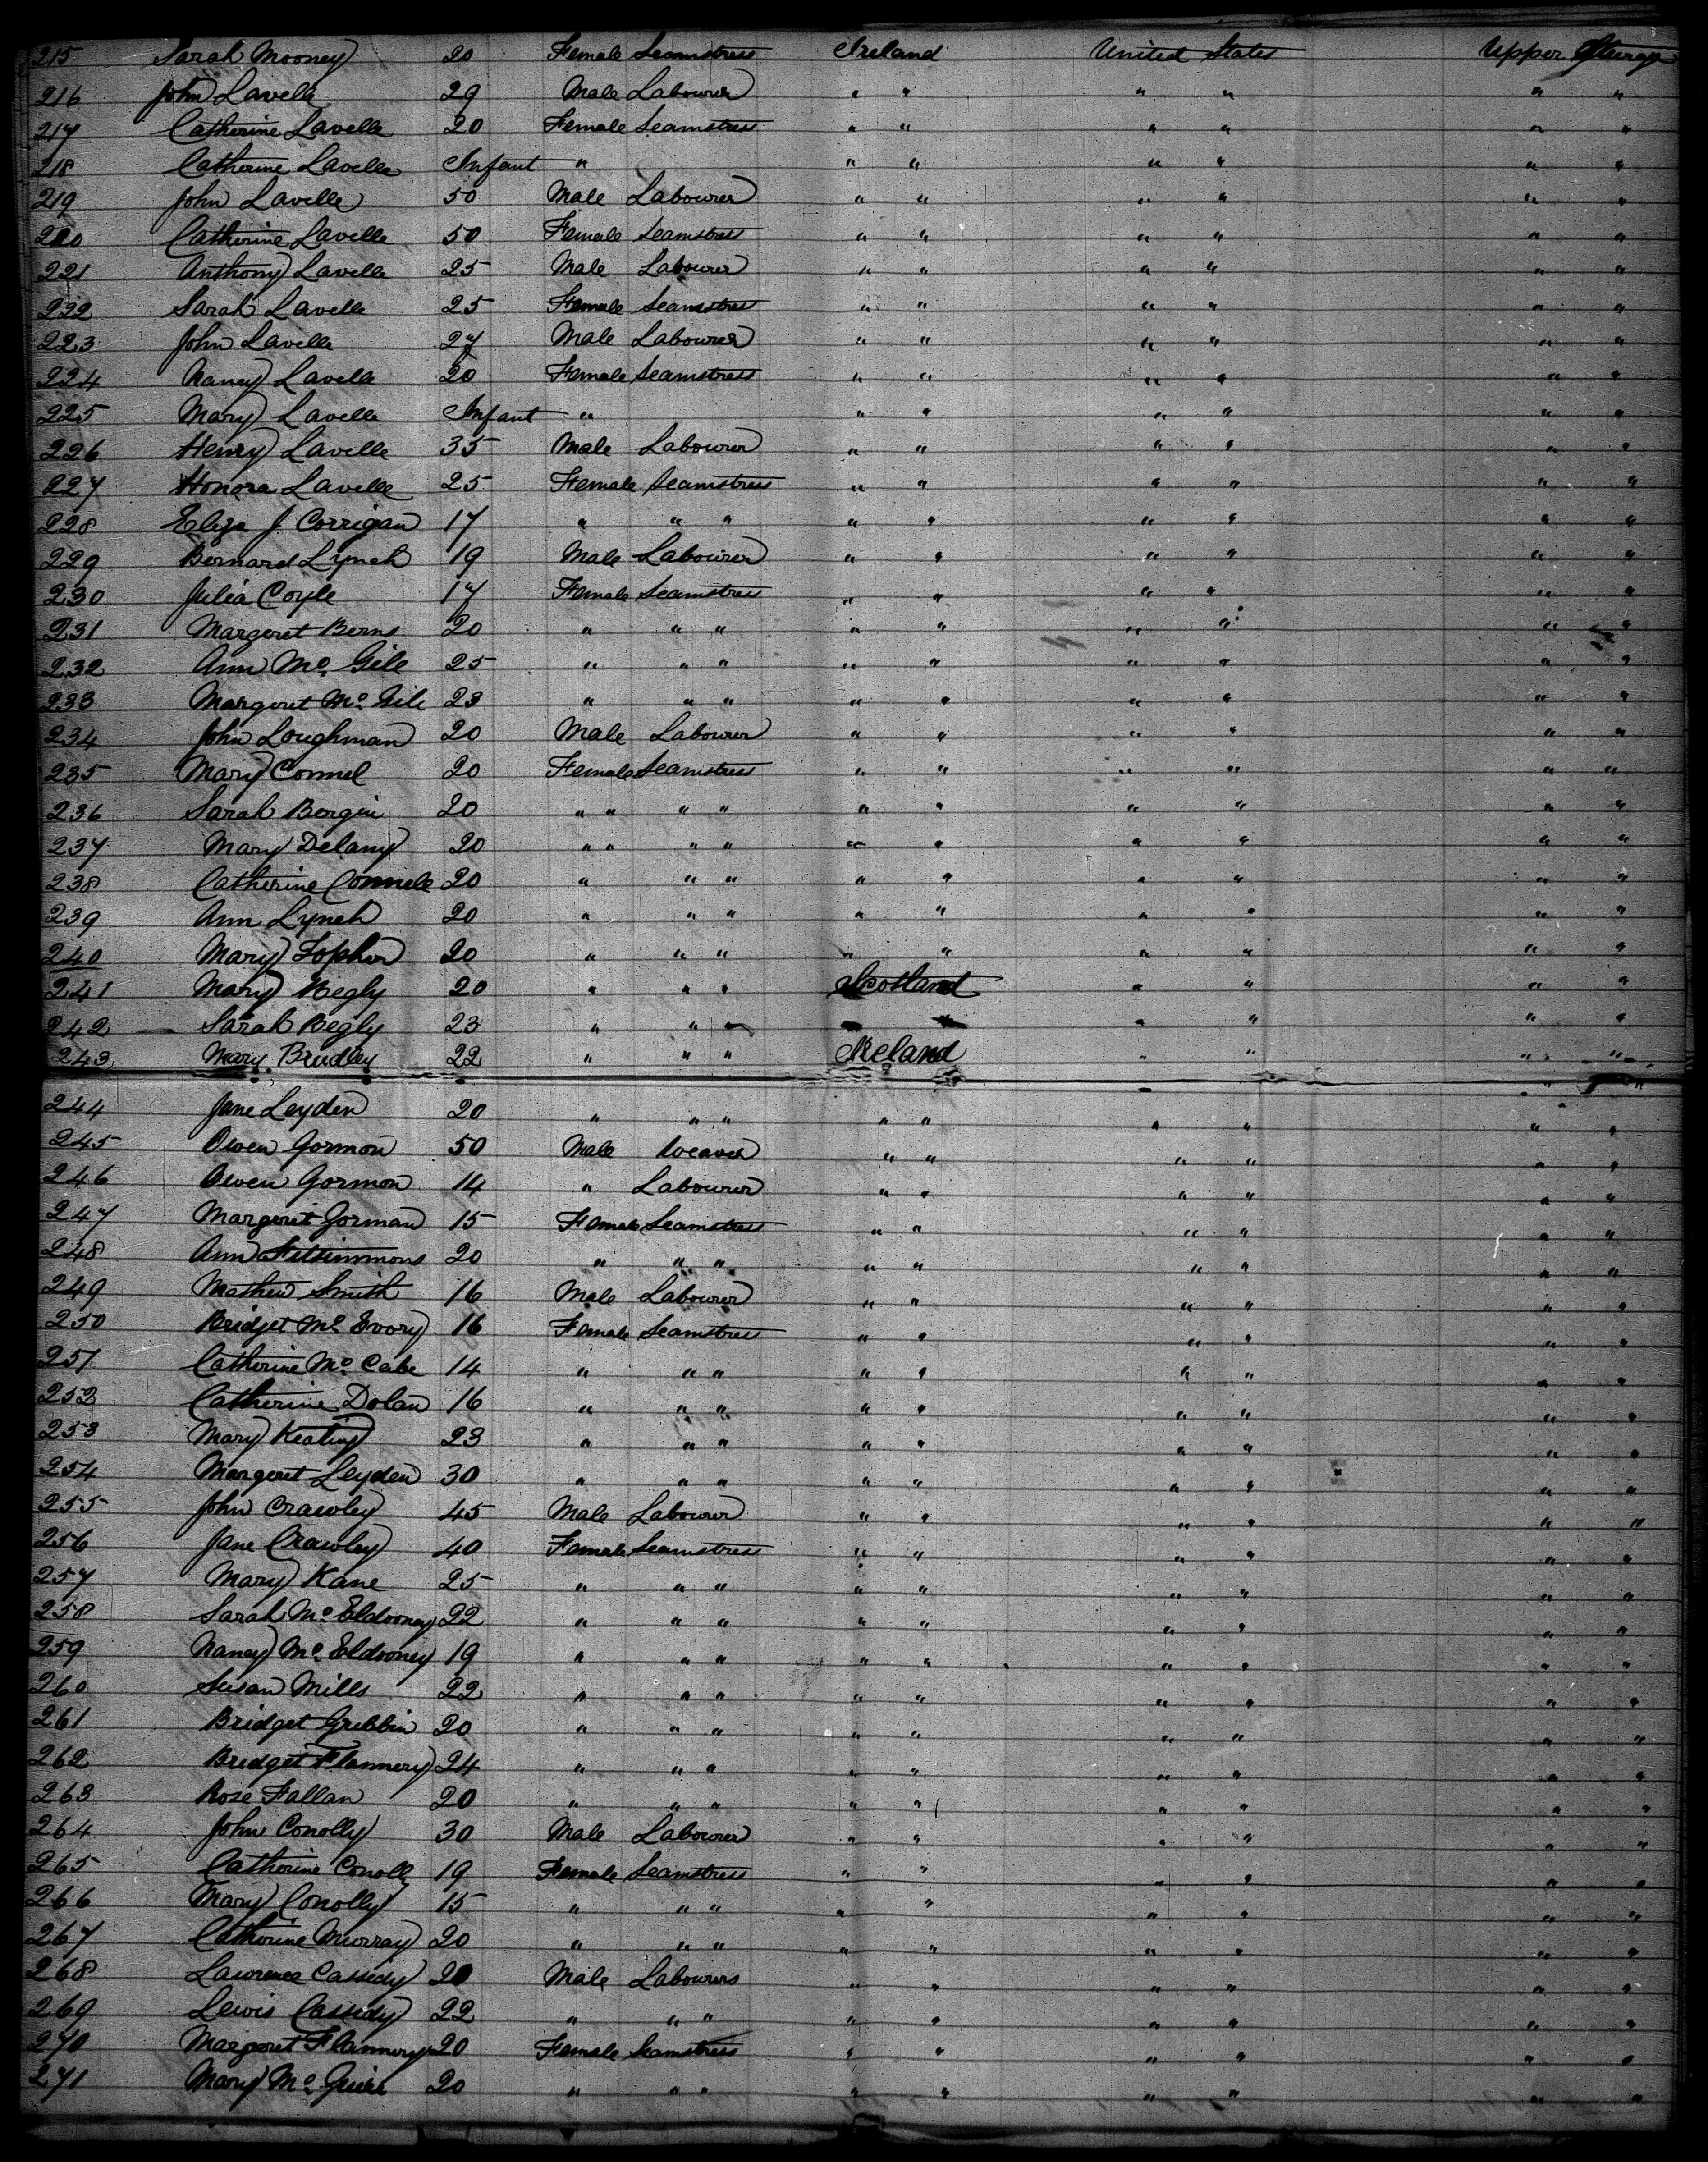 215 Sarah Mooney 20 Female Seamstress Ireland United States Upper Steerage
216 John Lavelle 29 Male Labourer " " " " " "
217 Catherine Lavelle 20 Female Seamstress " " " " " "
218 Catherine Lavelle Infant " " " " " " "
219 John Lavelle 50 Male Labourer " " " " " "
220 Catherine Lavelle 50 Female Seamstress " " " " " "
221 Anthony Lavelle 25 Male Labourer " " " " " "
222 Sarah Lavelle 25 Female Seamstress " " " " " "
223 John Lavelle 27 Male Labourer " " " " " "
224 Nancy Lavelle 20 Female Seamstress " " " " " "
225 Mary Lavelle Infant " " " " " " "
226 Henry Lavelle 35 Male Labourer " " " " " "
227 Honora Lavelle 25 Female Seamstress " " " " " "
228 Eliza J Corrigan 17 " " " " " " " " "
229 Bernard Lynch 19 Male Labourer " " " " " "
230 Julia Coyle 17 Female Seamstress " " " " " "
231 Margeret Berns 20 " " " " " " " " "
232 Ann Mc Gile 25 " " " " " " " " "
233 Margeret Mc Gile 23 " " " " " " " " "
234 John Loughman 20 Male Labourer " " " " " "
235 Mary Connel 20 Female Seamstress " " " " " "
236 Sarah Bergin 20 " " " " " " " " " "
237 Mary Delany 20 " " " " " " " " " "
238 Catherine Connele 20 " " " " " " " " "
239 Ann Lynch 20 " " " " " " " " "
240 Mary 20 " " " " " " " " "
241 Mary Begly 20 " " " Scotland " " " "
242 Sarah Begly 23 " " " " " " " " "
243 Mary Brudley 22 " " " Ireland " " " "
244 Jane Leyden 20 " " " " " " " " "
245 Owen Gormon 50 Male Weaver " " " " " "
246 Owen Gormon 14 " Labourer " " " " " "
247 Margeret Gorman 15 Female Seamstress " " " " " "
248 Ann Fittsimmons 20 " " " " " " " " "
249 Mathew Smith 16 Male Labourer " " " " " "
250 Bridget Mc Evory 16 Female Seamstress " " " " " "
251 Catherine Mc Cabe 14 " " " " " " " " "
252 Catherine Dolan 16 " " " " " " " " "
253 Mary Keating 23 " " " " " " " " "
254 Margeret Leyden 30 " " " " " " " " "
255 John Crawley 45 Male Labourer " " " " " "
256 Jane Crawley 40 Female Seamstress " " " " " "
257 Mary Kane 25 " " " " " " " " "
258 Sarah Mc Eldooney 22 " " " " " " " " "
259 Nancy Mc Eldooney 19 " " " " " " " " "
260 Susan Mills 22 " " " " " " " " "
261 Bridget Gribbin 20 " " " " " " " " "
262 Bridget Flannery 24 " " " " " " " " "
263 Rose Fallan 20 " " " " " " " " "
264 John Conolly 30 Male Labourer " " " " " "
265 Catherine Conolly 19 Female Seamstress " " " " " "
266 Mary Conolly 15 " " " " " " " " "
267 Catherine Murray 20 " " " " " " " " "
268 Lawrence Cassedy 20 Male Labourers " " " " " "
269 Lewis Cassedy 22 " " " " " " " " "
270 Margeret Flannery 20 Female Seamstress " " " " " "
271 Mary Mc Guire 20 " " " " " " " " "